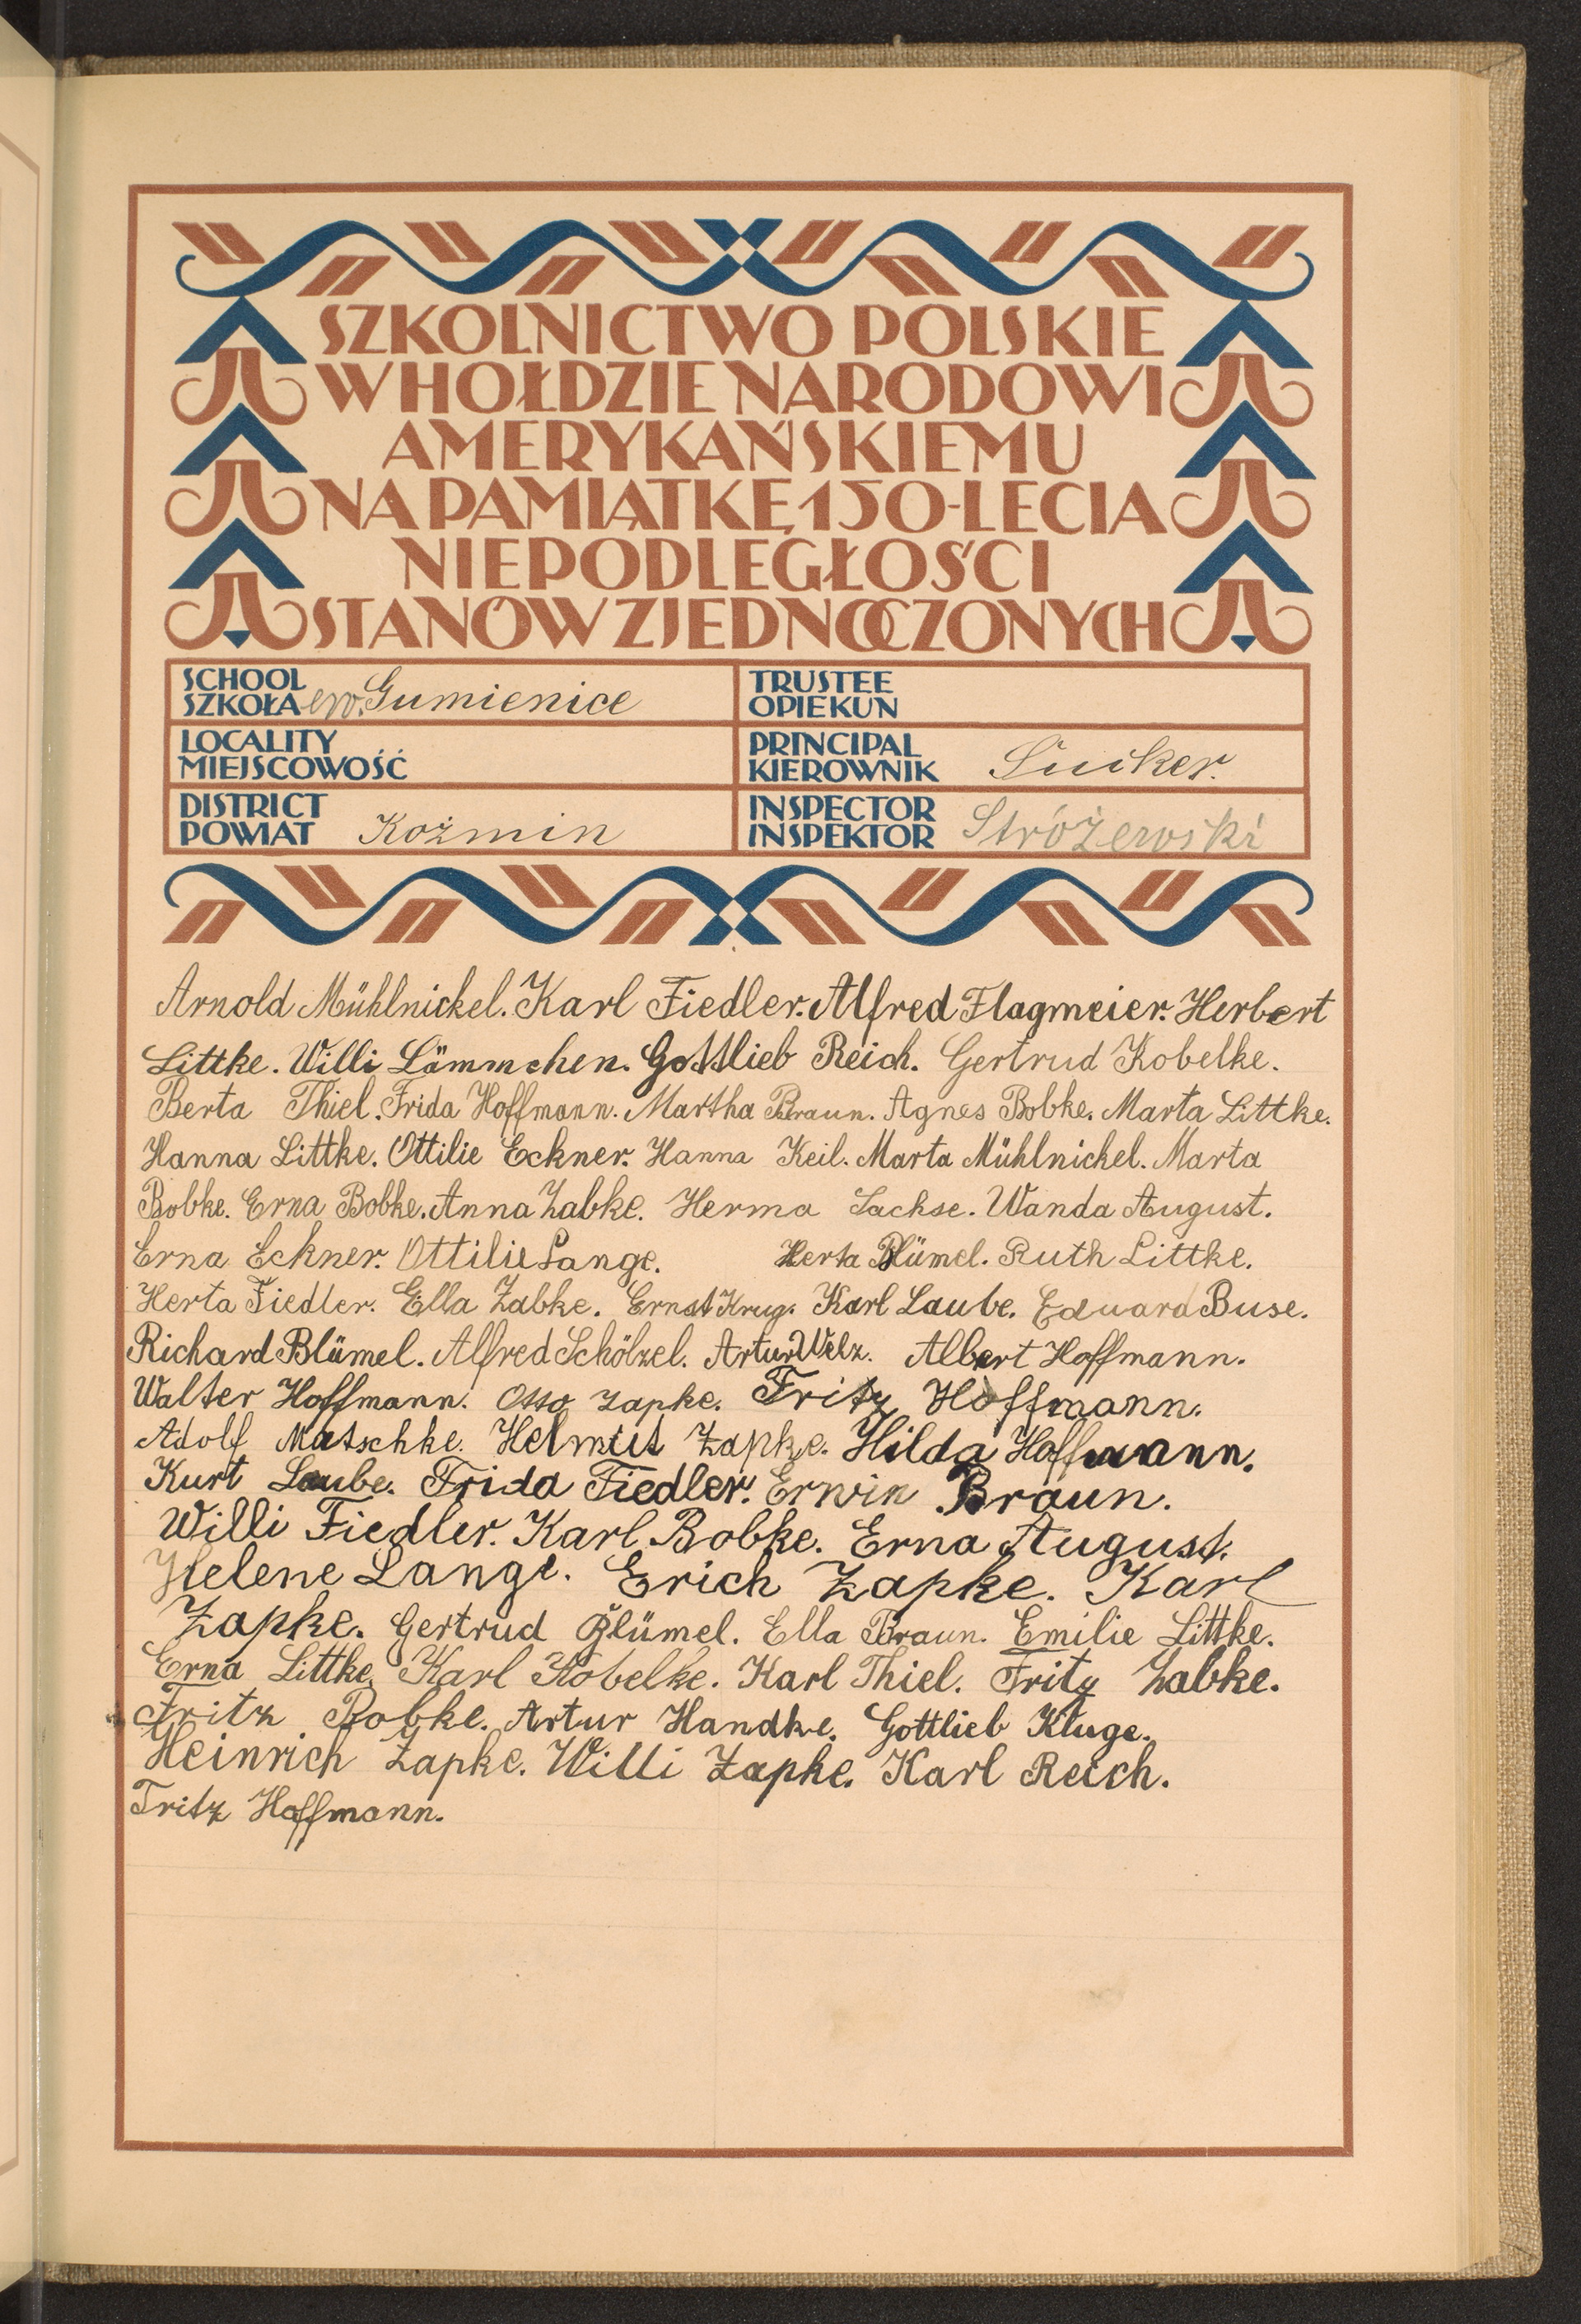 SZKOLNICTWO POLSKIE
W HOŁDZIE NARODOWI
AMERYKAŃSKIEMU
NA PAMIĄTKĘ 150-LECIA
NIEPODLEGŁOŚCI
STANÓW ZJEDNOCZONYCH
SCHOOL
SZKOŁA ew. Gumienice
TRUSTEE
OPIEKUN
LOCALITY
MIEJSCOWOŚĆ
PRINCIPAL
KIEROWNIK Sucker.
DISTRICT
POWIAT Koźmin
INSPECTOR
INSPEKTOR Stróżewski
Arnold Mühlnickel. Karl Fiedler. Alfred Flagmeier. Herbert
Littke. Willi Lämmchen. Gottlieb Reich. Gertrud Kobelke.
Berta Thiel. Frida Hoffmann. Martha Braun. Agnes Bobke. Marta Littke.
Hanna Littke. Ottilie Eckner. Hanna Keil. Marta Mühlnickel. Marta
Bobke. Erna Bobke. Anna Zabke. Herma Sachse. Wanda August.
Erna Eckner. Ottilie Lange. Herta Blümel. Ruth Littke.
Herta Fiedler. Ella Zabke. Ernst Krug. Karl Laube. Eduard Buse.
Richard Blümel. Alfred Schölzel. Artur Welz. Albert Hoffmann.
Walter Hoffmann. Otto Zapke. Fritz Hoffmann.
Adolf Matschke. Helmut Zapke. Hilda Hoffmann.
Kurt Laube. Frida Fiedler. Erwin Braun.
Willi Fiedler. Karl Bobke. Erna August.
Helene Lange. Erich Zapke. Karl
Zapke. Gertrud Blümel. Ella Braun. Emilie Littke.
Erna Littke. Karl Kobelke. Karl Thiel. Fritz Zabke.
Fritz Bobke. Artur Handke. Gottlieb Kluge.
Heinrich Zapke. Willi Zapke. Karl Reich.
Fritz Hoffmann.